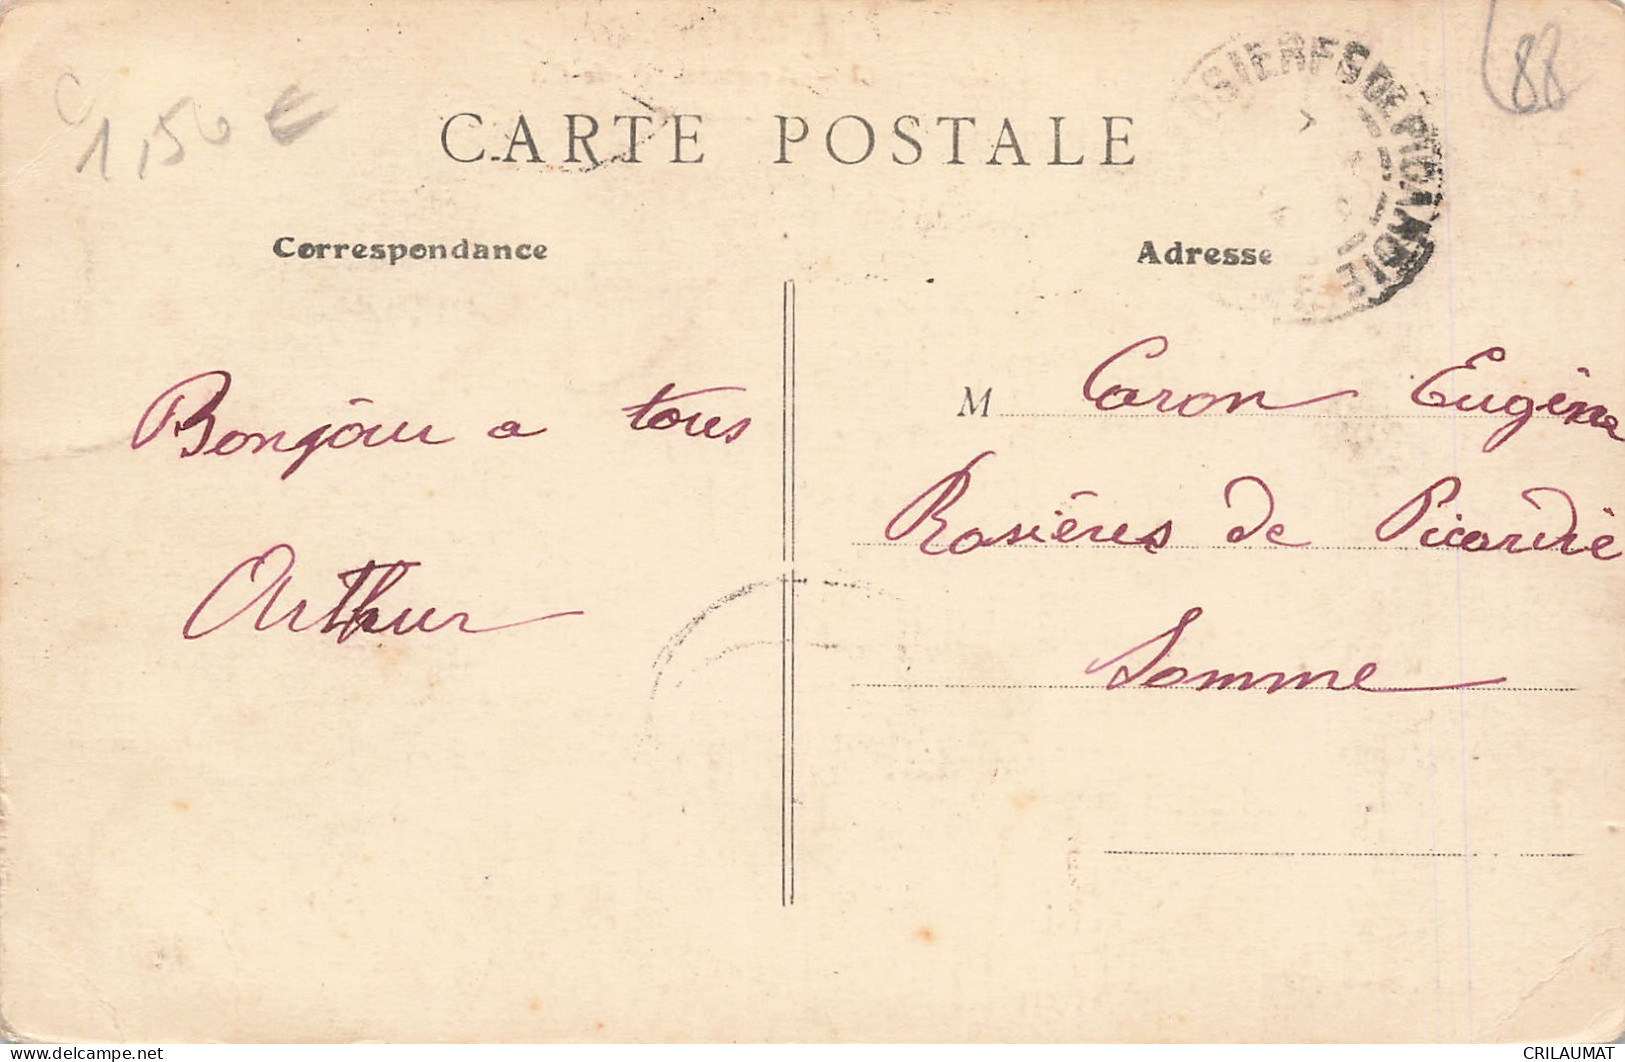 1,50 €
88
CARTE POSTALE
OSIERES DE PICARDIE
Correspondance
Adresse
Bonjour a tous
Arthur
M Caron Eugène
Rosières de Picardie
Somme
www.delcampe.net
CRILAUMAT